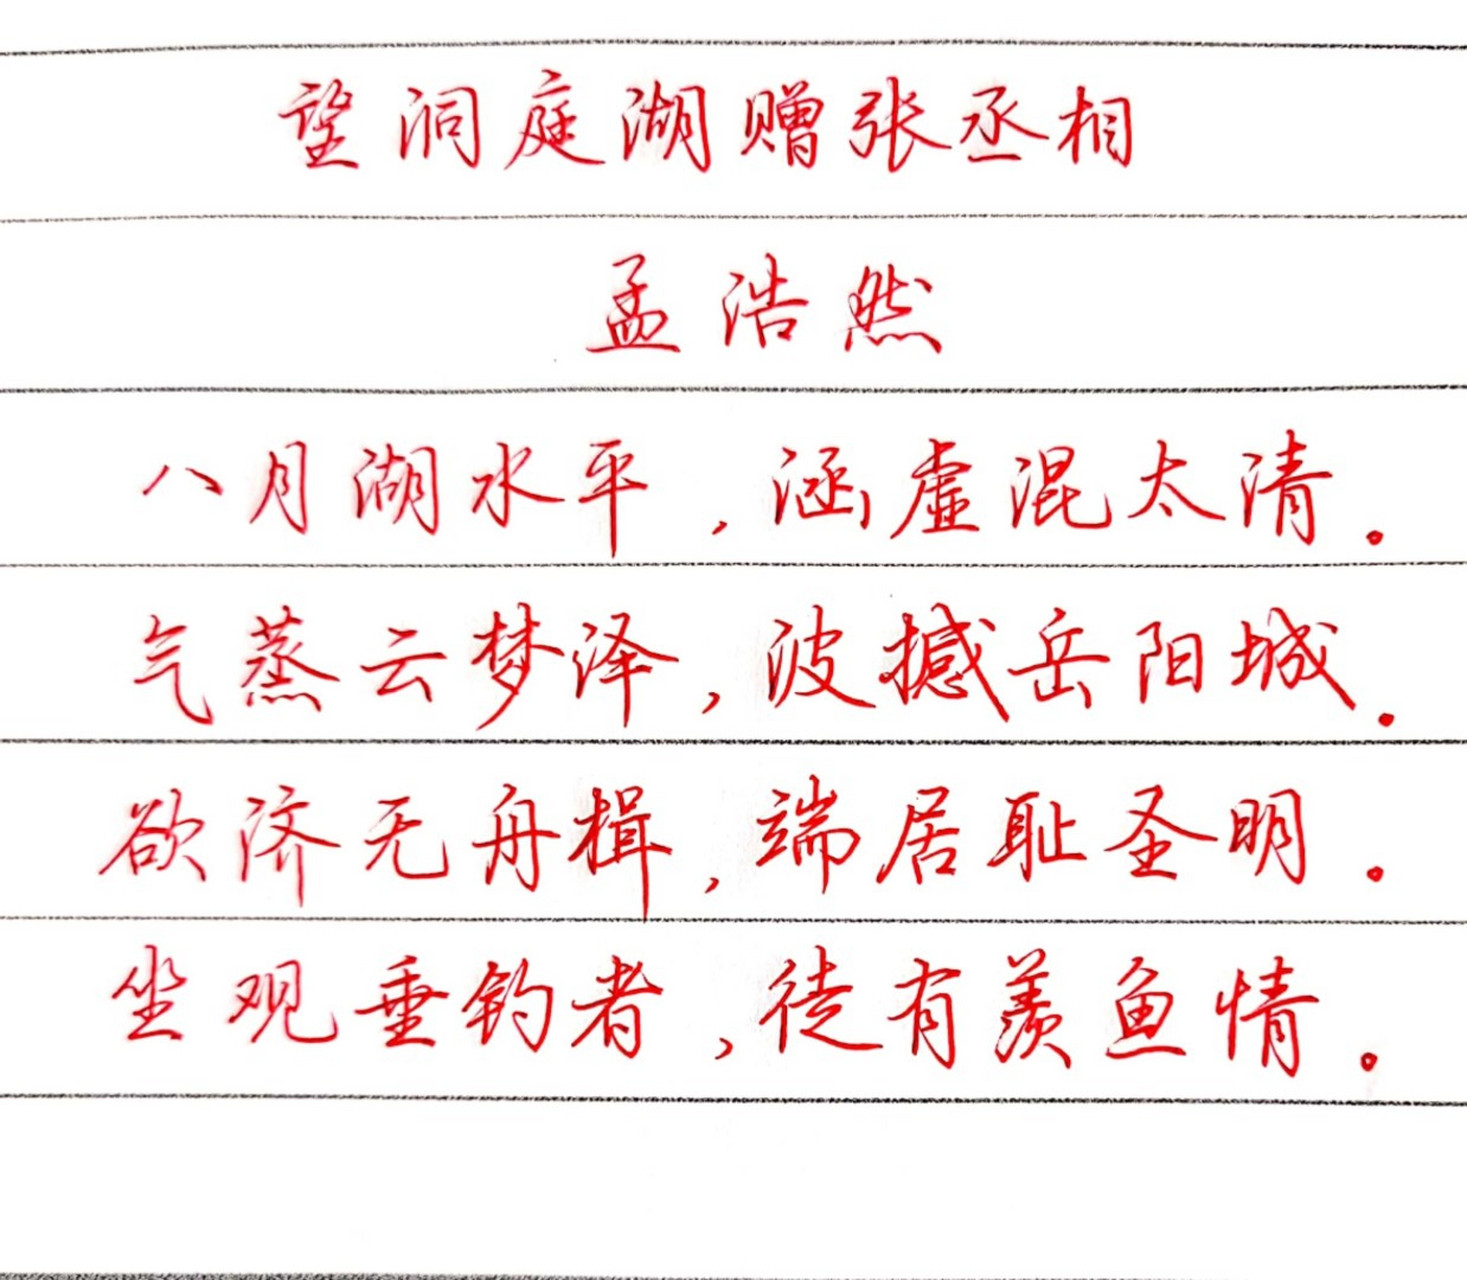 望洞庭湖赠张丞相
孟浩然
八月湖水平,涵虚混太清.
气蒸云梦泽,波撼岳阳城.
欲济无舟楫,端居耻圣明.
坐观垂钓者,徒有羡鱼情.